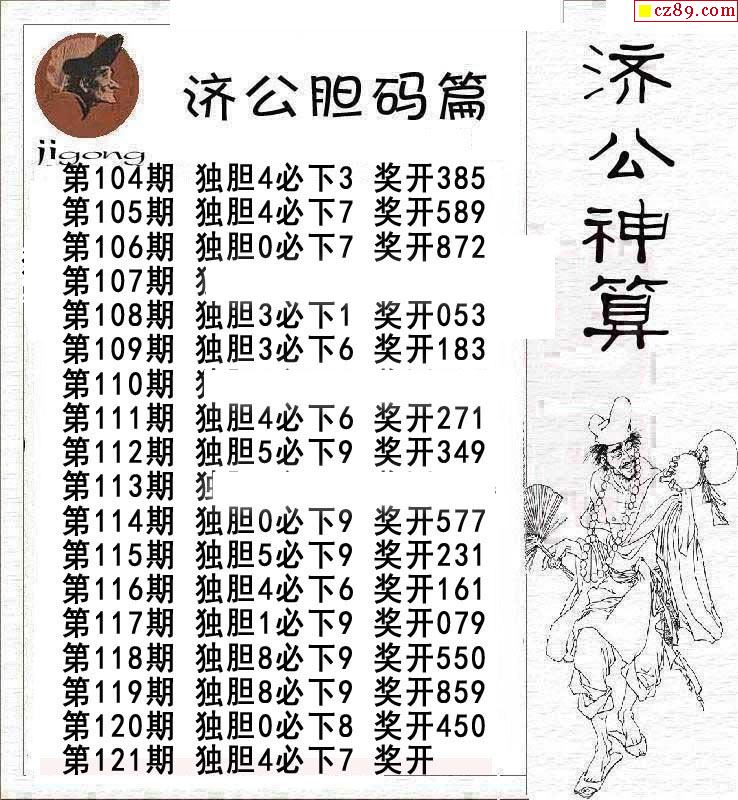 cz89.com
济公胆码篇
济公神算
jigong
第104期 独胆4必下3 奖开385
第105期 独胆4必下7 奖开589
第106期 独胆0必下7 奖开872
第107期
第108期 独胆3必下1 奖开053
第109期 独胆3必下6 奖开183
第110期
第111期 独胆4必下6 奖开271
第112期 独胆5必下9 奖开349
第113期
第114期 独胆0必下9 奖开577
第115期 独胆5必下9 奖开231
第116期 独胆4必下6 奖开161
第117期 独胆1必下9 奖开079
第118期 独胆8必下9 奖开550
第119期 独胆8必下9 奖开859
第120期 独胆0必下8 奖开450
第121期 独胆4必下7 奖开